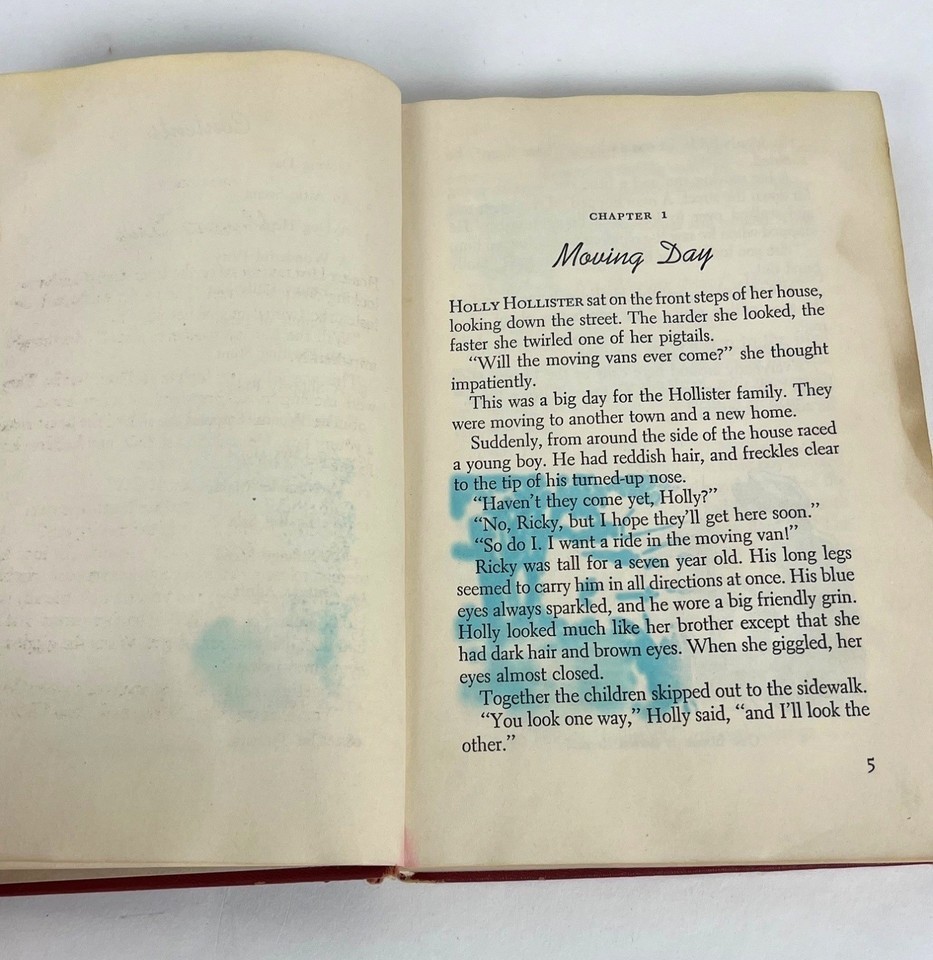 CHAPTER 1
Moving Day
HOLLY HOLLISTER sat on the front steps of her house,
looking down the street. The harder she looked, the
faster she twirled one of her pigtails.
“Will the moving vans ever come?” she thought
impatiently.
This was a big day for the Hollister family. They
were moving to another town and a new home.
Suddenly, from around the side of the house raced
a young boy. He had reddish hair, and freckles clear
to the tip of his turned-up nose.
“Haven’t they come yet, Holly?”
“No, Ricky, but I hope they’ll get here soon.”
“So do I. I want a ride in the moving van!”
Ricky was tall for a seven year old. His long legs
seemed to carry him in all directions at once. His blue
eyes always sparkled, and he wore a big friendly grin.
Holly looked much like her brother except that she
had dark hair and brown eyes. When she giggled, her
eyes almost closed.
Together the children skipped out to the sidewalk.
“You look one way,” Holly said, “and I’ll look the
other.”
5